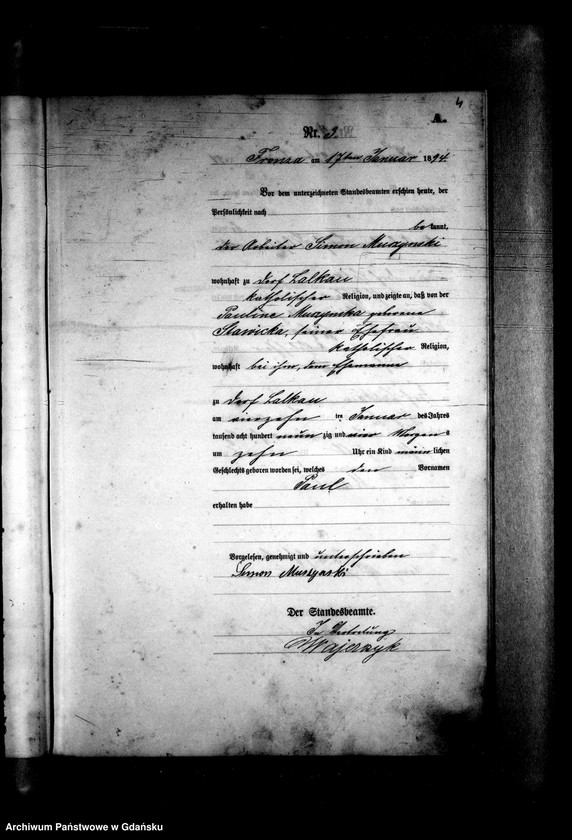 4
A.
Nr. 3.
Fronza am 17ten Januar 1894.
Vor dem unterzeichneten Standesbeamten erschien heute, der
Persönlichkeit nach
bekannt,
der Arbeiter Simon Muszynski
wohnhaft zu Dorf Lalkau
katholischer Religion, und zeigte an, daß von der
Pauline Muszynska geborene
Slawicka, seiner Ehefrau
katholischer Religion,
wohnhaft bei ihm, dem Ehemanne
zu Dorf Lalkau
am vierzehnten Januar des Jahres
tausend acht hundert neunzig und vier Morgens
um zehn Uhr ein Kind männlichen
Geschlechts geboren worden sei, welches den Vornamen
Paul
erhalten habe
Vorgelesen, genehmigt und unterschrieben
Simon Muszynski
Der Standesbeamte.
In Vertretung
Majerzyk
Archiwum Państwowe w Gdańsku